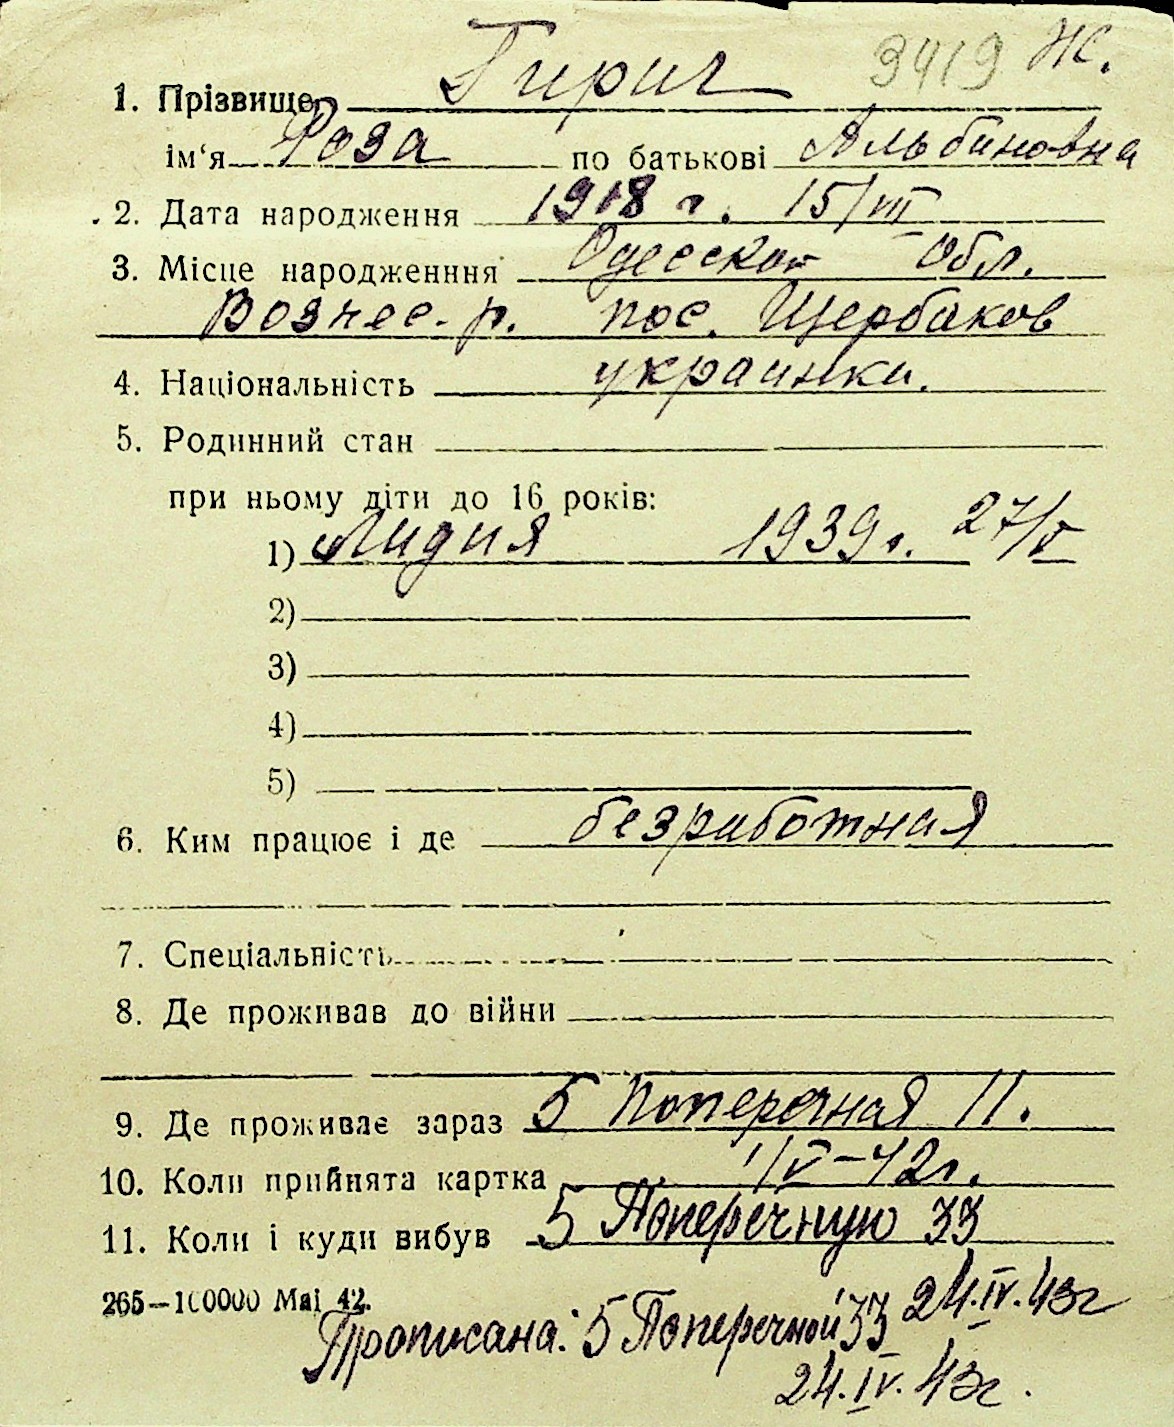 3419 Ж.
1. Прізвище Гирич
ім‘я Роза по батькові Альбиновна
2. Дата народження 1918 г. 15/VII
3. Місце народженння Одесской Обл.
Вознес. р. пос. Щербаков
4. Національність украинка.
5. Родинний стан
при ньому діти до 16 років:
1) Лидия 1939 г. 27/V
2)
3)
4)
5)
6. Ким працює і де безработная
7. Спеціальність
8. Де проживав до війни
9. Де проживає зараз 5 Поперечная 11.
10. Коли прийнята картка 1/V-42г.
11. Коли і куди вибув 5 Поперечную 33
265—100000 Маі 42. 24.IV.43г
Прописана: 5 Поперечной 33
24.IV.43г.